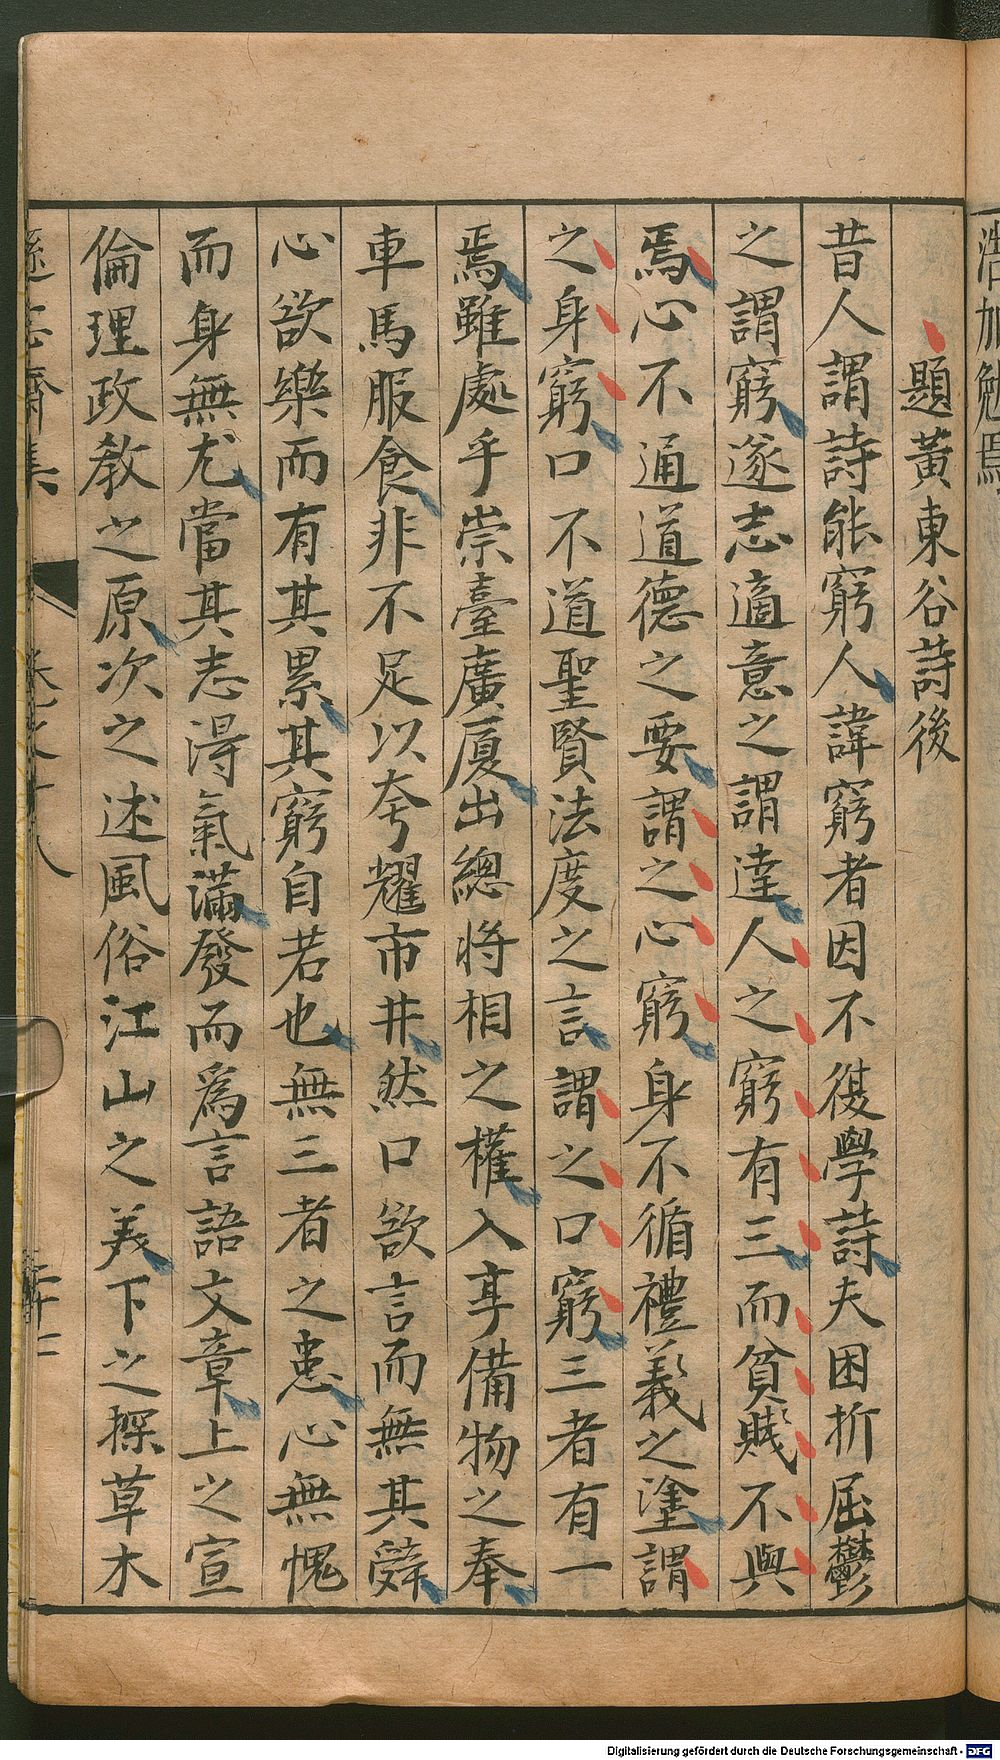 浩加勉焉
題黃東谷詩後
昔人謂詩能窮人諱窮者因不復學詩夫困折屈鬱
之謂窮遂志適意之謂達人之窮有三而貧賤不與
焉心不通道德之要謂之心窮身不循禮義之塗謂
之身窮口不道聖賢法度之言謂之口窮三者有一
焉雖處乎崇臺廣厦出總將相之權入享備物之奉
車馬服食非不足以夸耀市井然口欲言而無其辭
心欲樂而有其累其窮自若也無三者之患心無愧
而身無尤當其志得氣滿發而爲言語文章上之宣
倫理政教之原次之述風俗江山之美下之探草木
遜志齋集 卷之十八
Digitalisierung gefördert durch die Deutsche Forschungsgemeinschaft - DFG